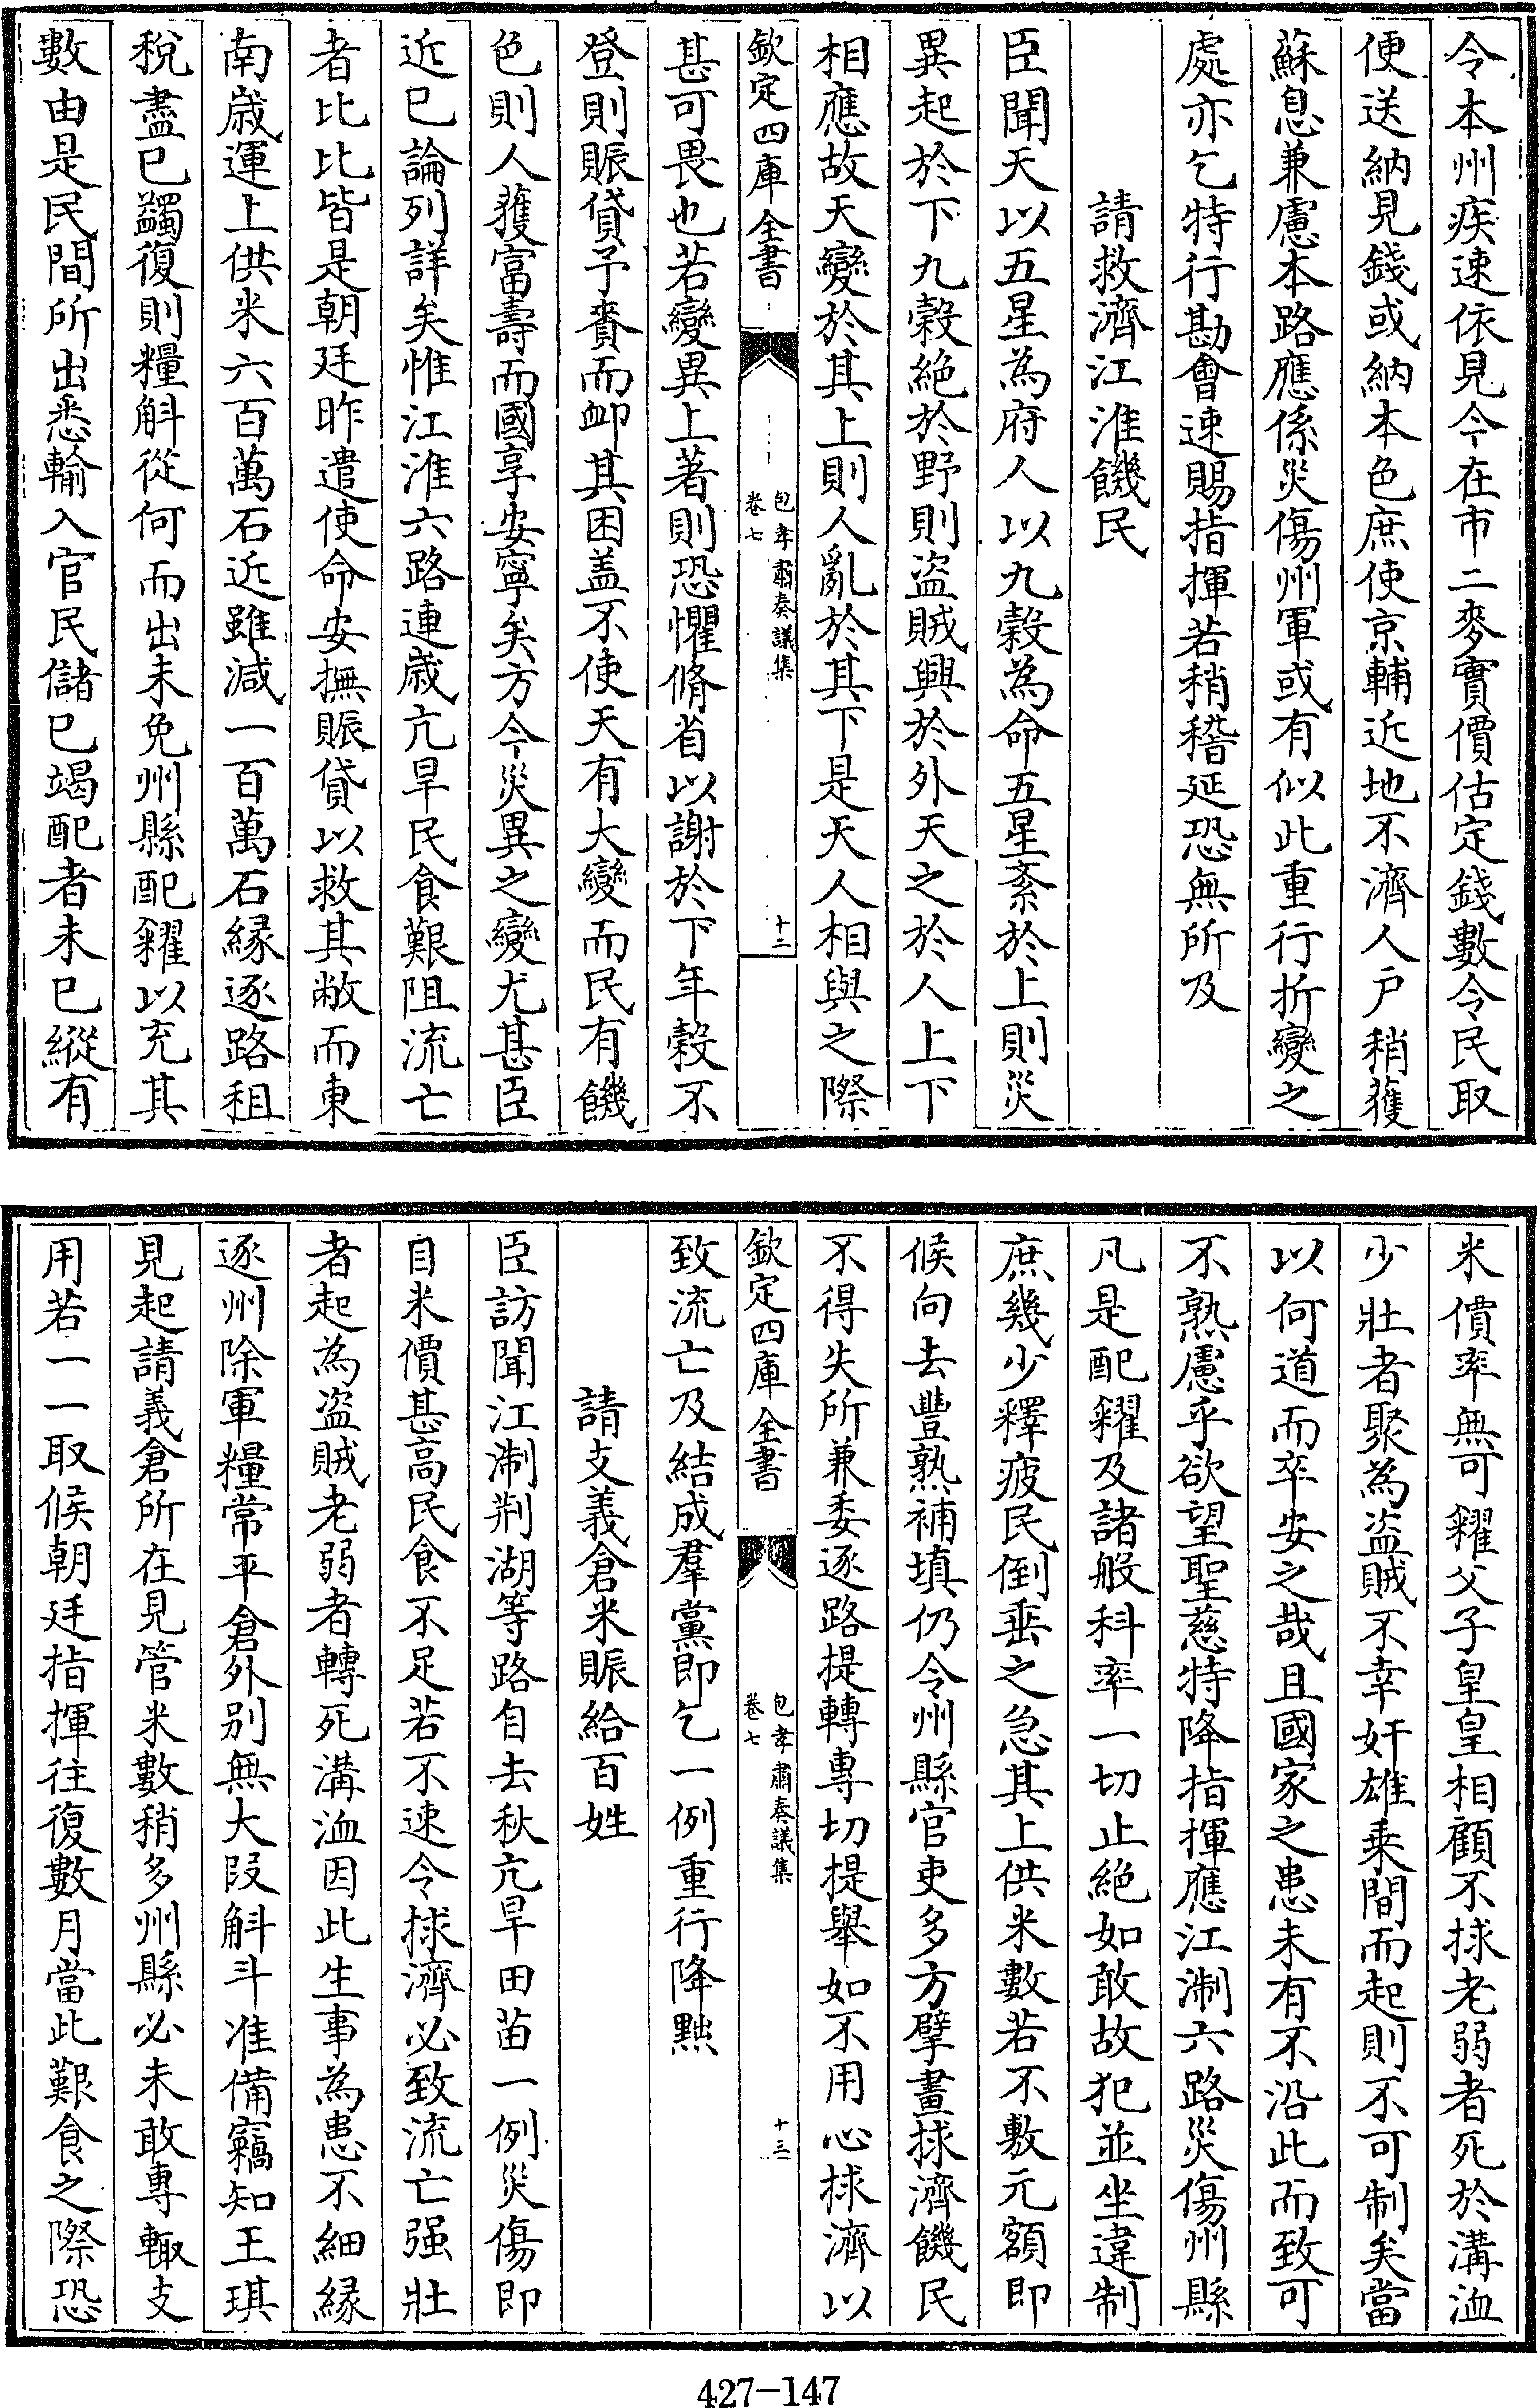 令本州疾速依見今在市二麥實價估定錢數令民取
便送納見錢或納本色庶使京輔近地不濟人戸稍獲
蘇息兼慮本路應係災傷州軍或有似此重行折變之
處亦乞特行勘會速賜指揮若稍稽延恐無所及
請救濟江淮饑民
臣聞天以五星為府人以九穀為命五星紊於上則災
異起於下九穀絶於野則盜賊興於外天之於人上下
相應故天變於其上則人亂於其下是天人相與之際
欽定四庫全書
包孝肅奏議集
卷七
十二
甚可畏也若變異上著則恐懼脩省以謝於下年穀不
登則賑貸予賚而卹其困盖不使天有大變而民有饑
色則人獲富壽而國享安寧矣方今災異之變尤甚臣
近已論列詳矣惟江淮六路連歲亢旱民食艱阻流亡
者比比皆是朝廷昨遣使命安撫賑貸以救其敝而東
南歲運上供米六百萬石近雖減一百萬石縁逐路租
稅盡已蠲復則糧斛從何而出未免州縣配糴以充其
數由是民間所出悉輸入官民儲已竭配者未已縱有
米價率無可糴父子皇皇相顧不捄老弱者死於溝洫
少壯者聚為盜賊不幸奸雄乗間而起則不可制矣當
以何道而卒安之哉且國家之患未有不沿此而致可
不熟慮乎欲望聖慈特降指揮應江淛六路災傷州縣
凡是配糴及諸般科率一切止絶如敢故犯並坐違制
庶幾少釋疲民倒垂之急其上供米數若不敷元額即
候向去豐熟補填仍令州縣官吏多方擘畫捄濟饑民
不得失所兼委逐路提轉專切提舉如不用心捄濟以
欽定四庫全書
包孝肅奏議集
卷七
十三
致流亡及結成羣黨即乞一例重行降黜
請支義倉米賑給百姓
臣訪聞江淛荆湖等路自去秋亢旱田苗一例災傷即
目米價甚高民食不足若不速令捄濟必致流亡强壯
者起為盜賊老弱者轉死溝洫因此生事為患不細縁
逐州除軍糧常平倉外别無大叚斛斗准備竊知王琪
見起請義倉所在見管米數稍多州縣必未敢專輙支
用若一一取候朝廷指揮往復數月當此艱食之際恐
427-147